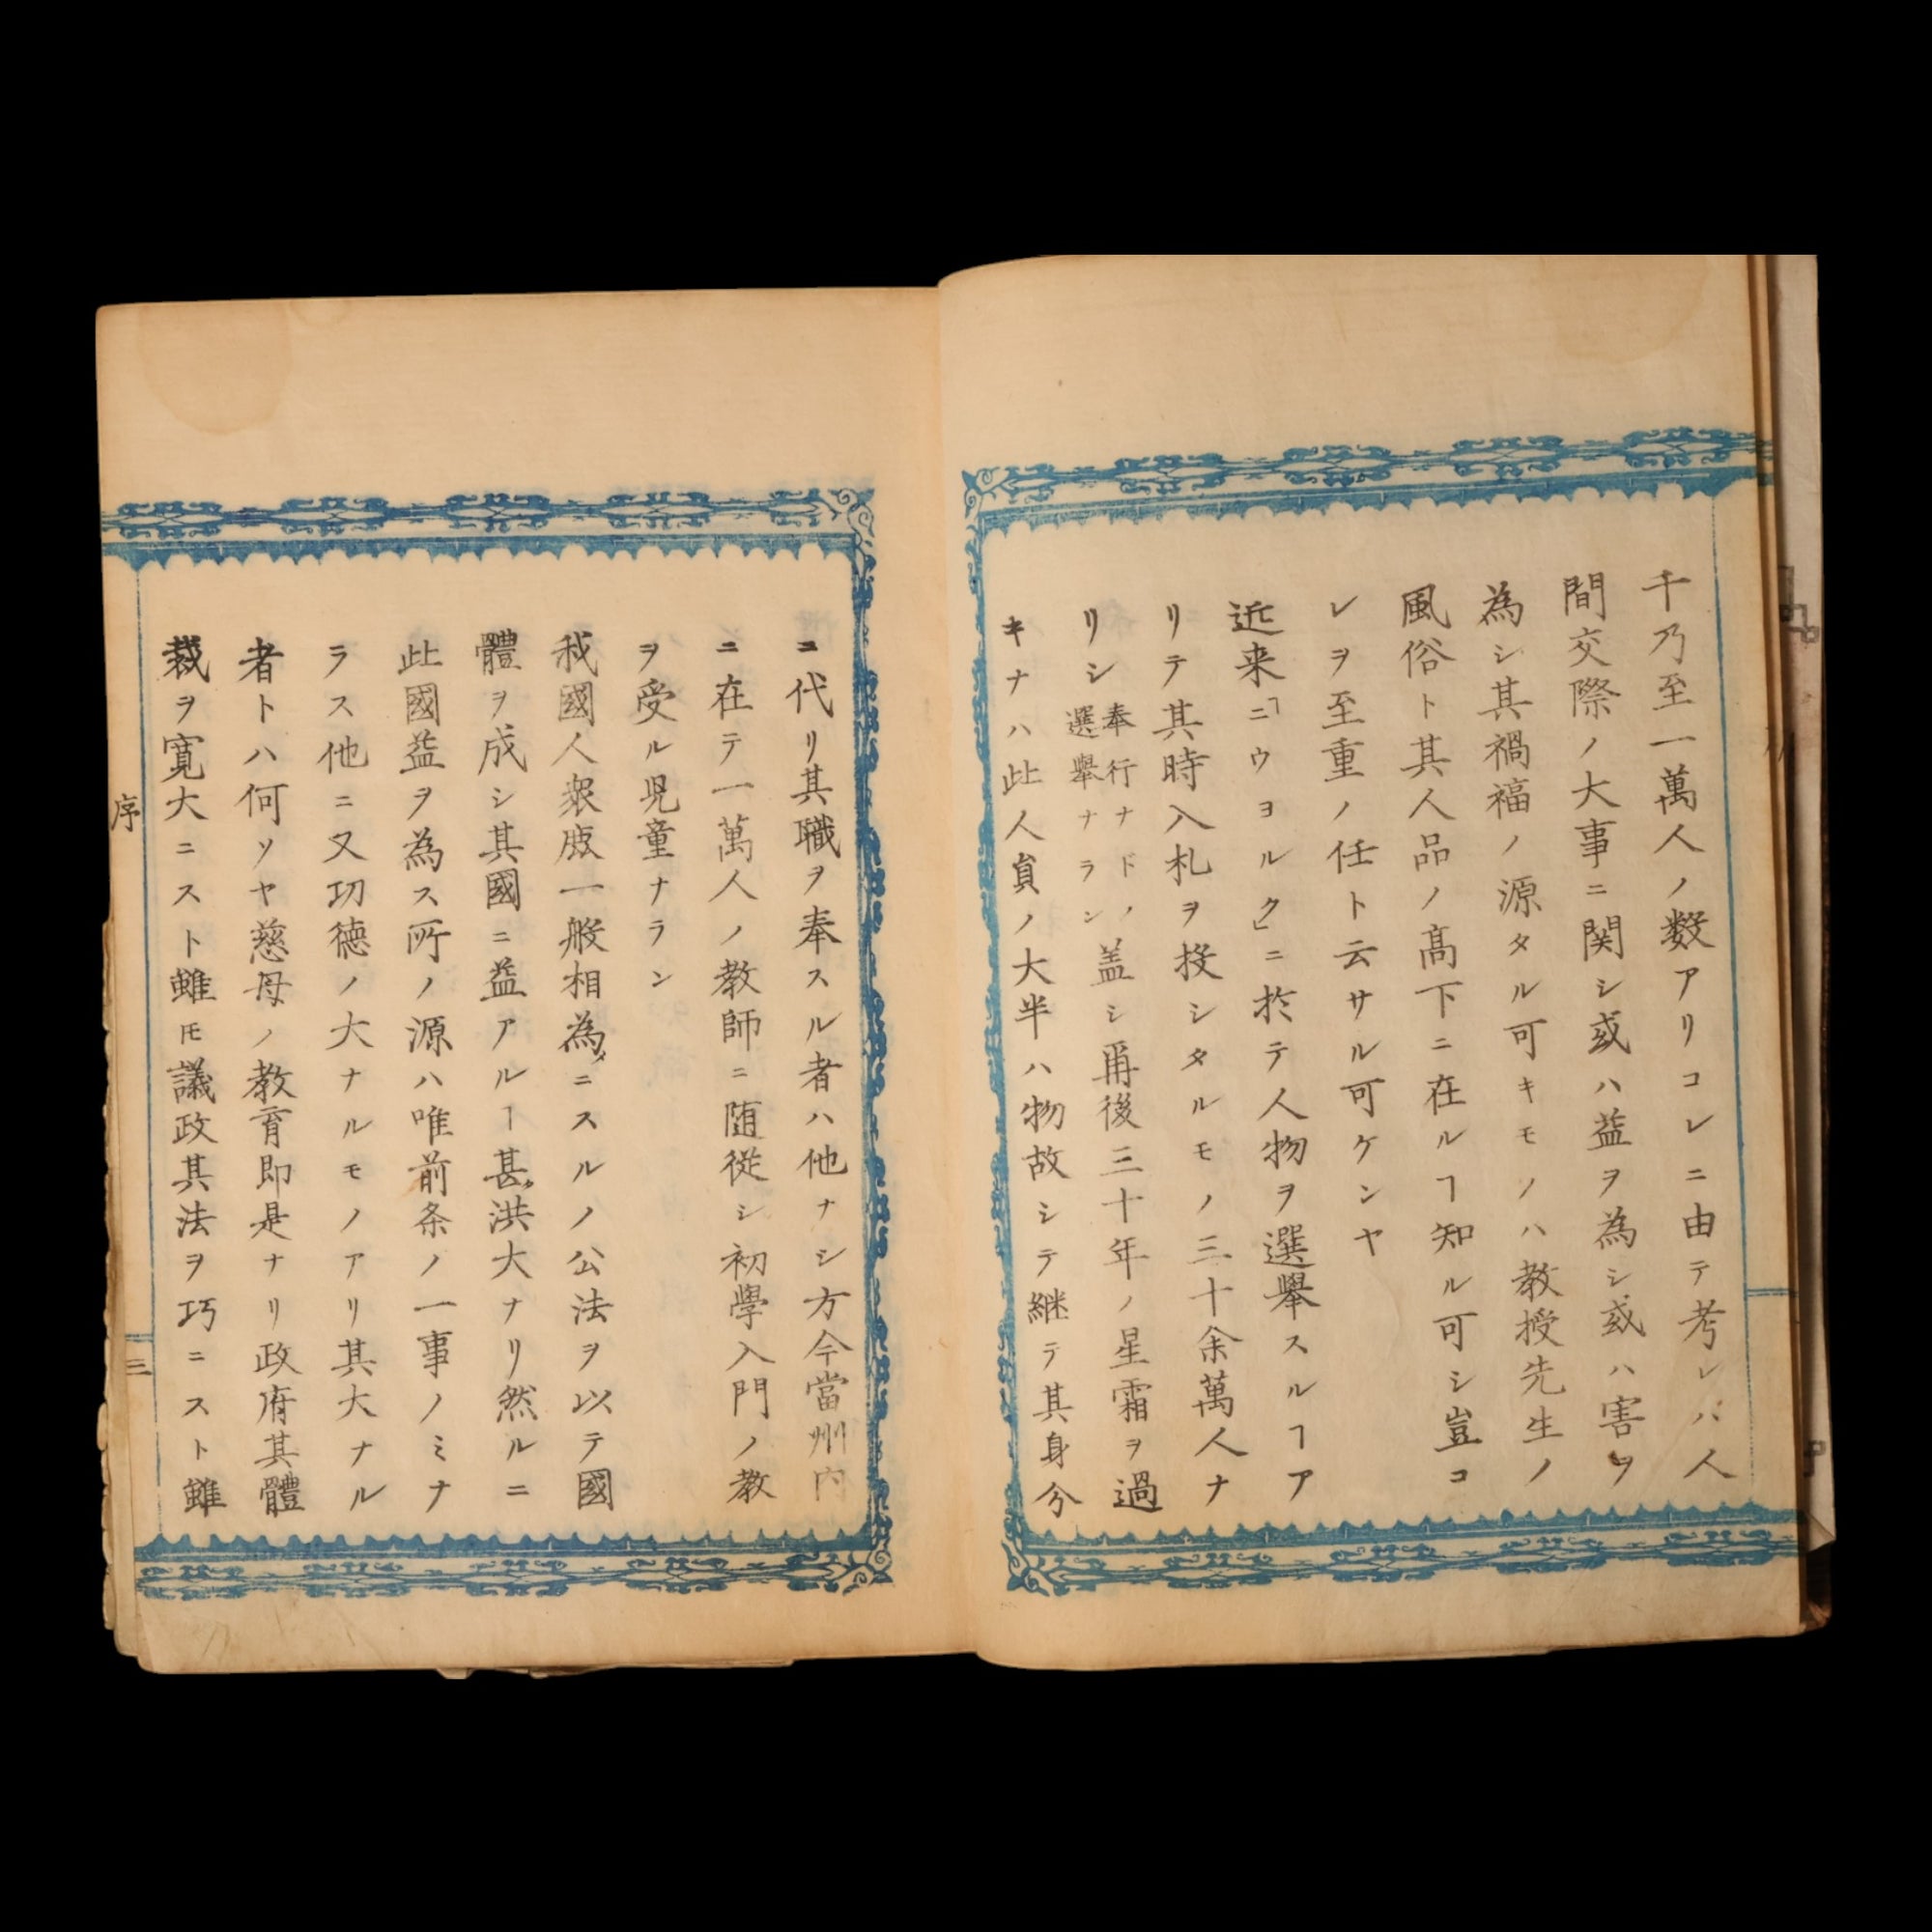 千乃至一萬人ノ数アリコレニ由テ考レハ人
間交際ノ大事ニ関シ或ハ益ヲ為シ或ハ害ヲ
為シ其禍福ノ源タル可キモノハ教授先生ノ
風俗ト其人品ノ高下ニ在ルヿ知ル可シ豈コ
レヲ至重ノ任ト云サル可ケンヤ
近来「ニウヨルク」ニ於テ人物ヲ選舉スルヿア
リテ其時入札ヲ投シタルモノ三十余萬人ナ
リシ奉行ナドノ選舉ナラン盖シ爾後三十年ノ星霜ヲ過
キナハ此人員ノ大半ハ物故シテ継テ其身分
ニ代リ其職ヲ奉スル者ハ他ナシ方今當州内
ニ在テ一萬人ノ教師ニ随従シ初學入門ノ教
ヲ受ル児童ナラン
我國人衆庶一般相為ニスルノ公法ヲ以テ國
體ヲ成シ其國ニ益アルヿ甚洪大ナリ然ルニ
此國益ヲ為ス所ノ源ハ唯前条ノ一事ノミナ
ラス他ニ又功徳ノ大ナルモノアリ其大ナル
者トハ何ソヤ慈母ノ教育即是ナリ政府其體
裁ヲ寛大ニスト雖𪜈議政其法ヲ巧ニスト雖
序
三